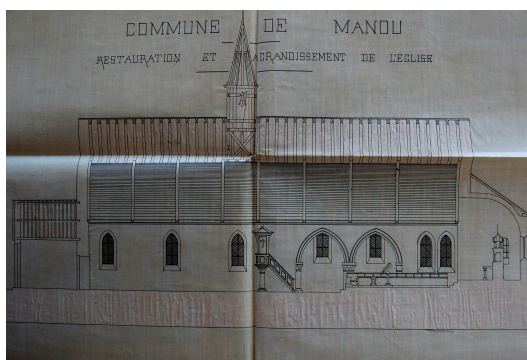 COMMUNE DE MANOU
RESTAURATION ET AGRANDISSEMENT DE L'EGLISE